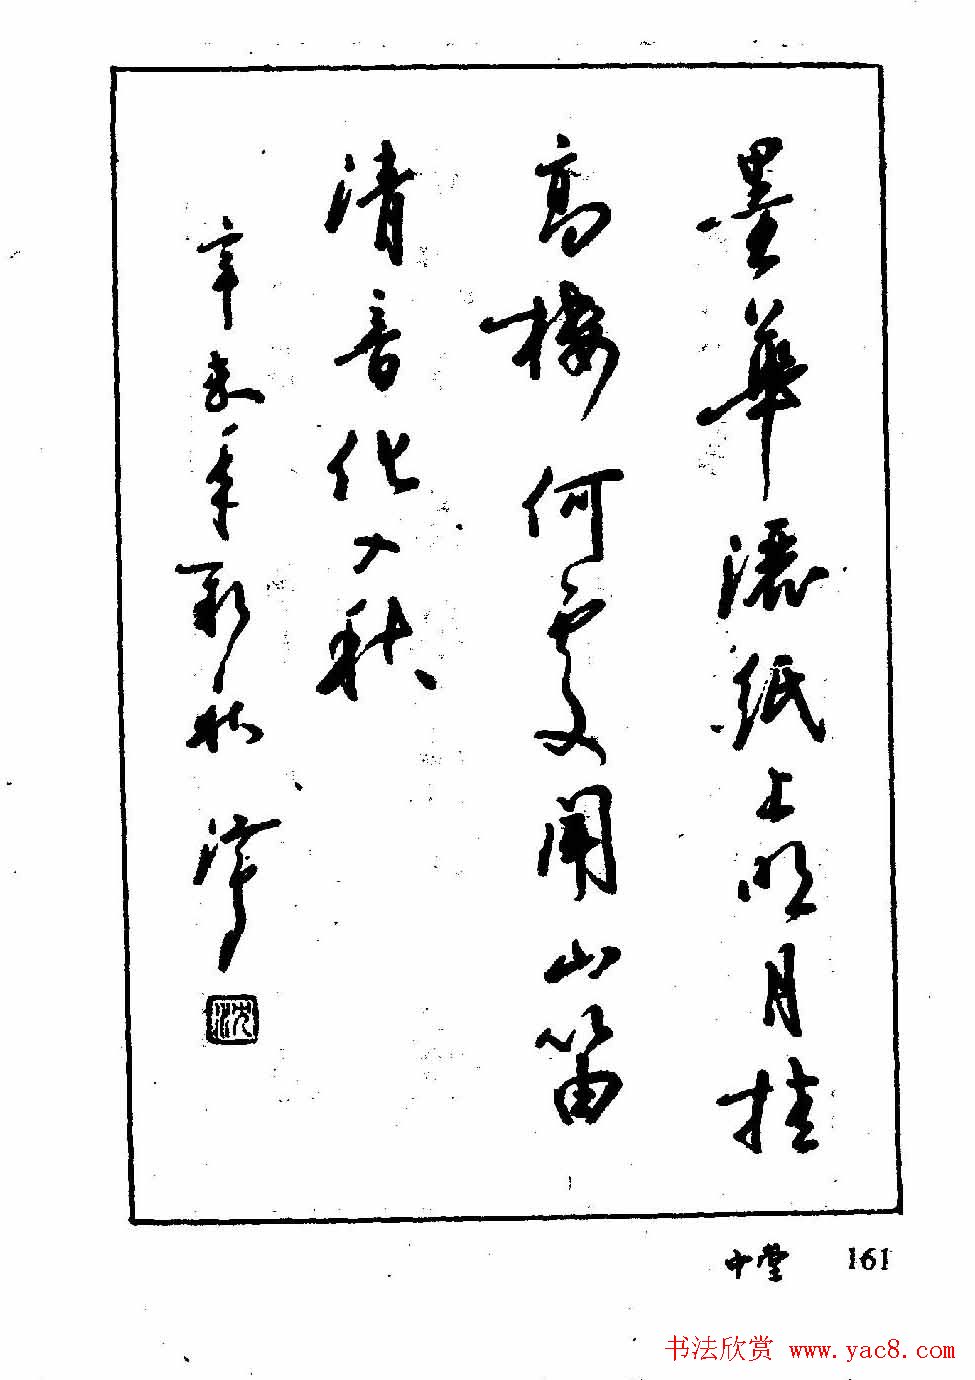 墨華灑紙上明月挂
高樓何處聞山笛
清音化入秋
辛未年新秋
沈
中堂 161
书法欣赏 www.yac8.com